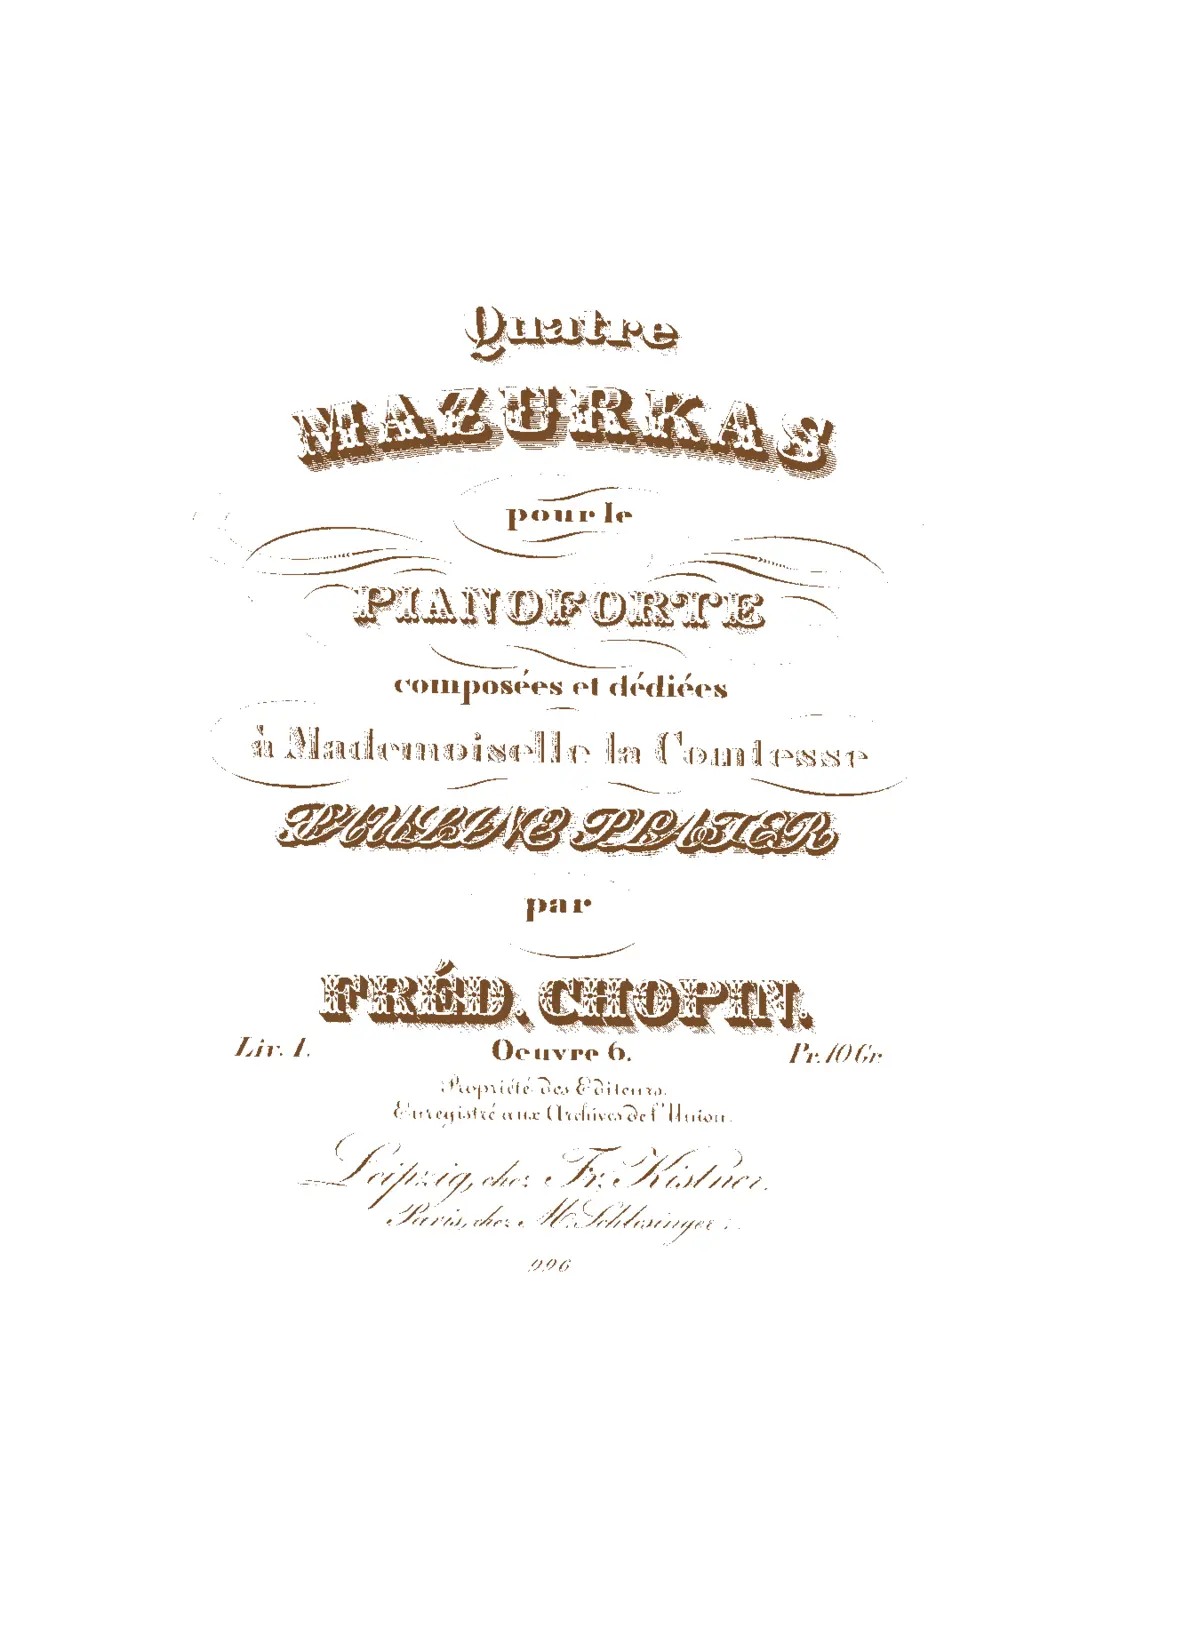 Quatre
MAZURKAS
pour le
PIANOFORTE
composées et dédiées
à Mademoiselle la Comtesse
PAULINE PLATER
par
FRÉD. CHOPIN.
Liv. 1. Oeuvre 6. Pr. 10 Gr.
Propriété des Editeurs.
Enregistré aux Archives de l'Union.
Leipzig, chez Fr. Kistner.
Paris, chez M. Schlesinger.
996